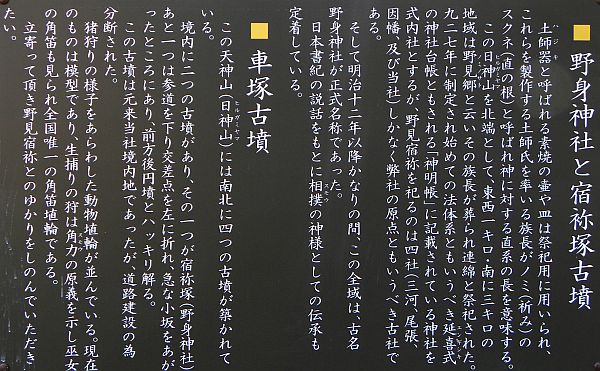 ■ 野身神社と宿祢塚古墳
土師器と呼ばれる素焼の壷や皿は祭祀用に用いられ、
これらを製作する土師氏を率いる族長がノミ(祈み)の
スクネ(直の根)と呼ばれ神に対する直系の長を意味する。
この日神山を北端として、東西一キロ・南に三キロの
地域は野見郷と云いその族長が葬られ連綿と祭祀された。
九二七年に制定され始めての法体系ともいうべき延喜式
の神社台帳ともされる「神明帳」に記載されている神社を
式内社とするが、野見宿祢を祀るのは四社(三河、尾張、
因幡、及び当社)しかなく弊社の原点ともいうべき古社で
ある。
そして明治十二年以降かなりの間、この全域は、古名
野身神社が正式名称であった。
日本書紀の説話をもとに相撲の神様としての伝承も
定着している。
■ 車塚古墳
この天神山(日神山)には南北に四つの古墳が築かれて
いる。
境内に二つの古墳があり、その一つが宿祢塚(野身神社)
あと一つは参道を下り交差点を左に折れ、急な小坂をあが
ったところにあり、前方後円墳とハッキリ解る。
この古墳は元来当社境内地であったが、道路建設の為
分断された。
猪狩りの様子をあらわした動物埴輪が並んでいる。現在
のものは模型であり、生捕りの狩は角力の原義を示し巫女
の角笛も見られ全国唯一の角笛埴輪である。
立寄って頂き野見宿祢とのゆかりをしのんでいただき
たい。